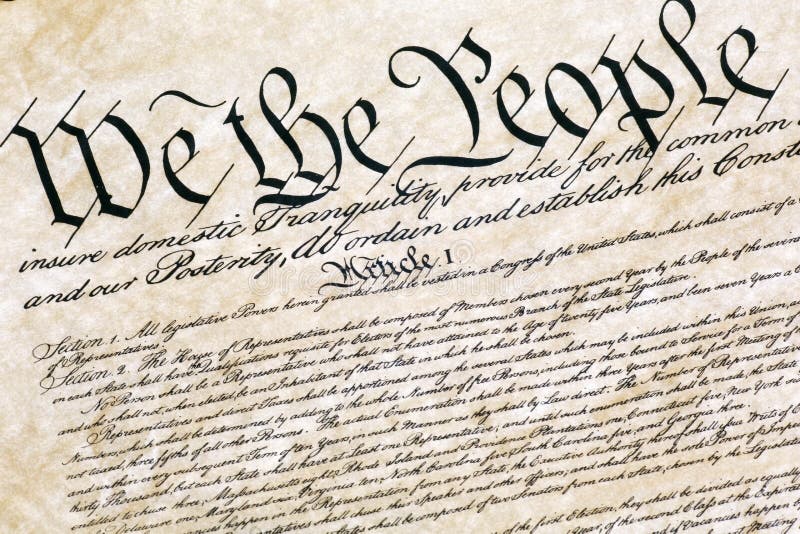 We the People
insure domestic Tranquility, provide for the common
and our Posterity, do ordain and establish this Const
Article I
Section 1. All legislative Powers herein granted shall be vested in a Congress of the United States, which shall consist of a
of Representatives
Section 2. The House of Representatives shall be composed of Members chosen every second Year by the People of the several
in each State shall have the Qualifications requisite for Electors of the most numerous Branch of the State Legislature.
No Person shall be a Representative who shall not have attained to the Age of twenty five Years, and been seven Years a
and who shall not, when elected, be an Inhabitant of that State in which he shall be chosen.
Representatives and direct Taxes shall be apportioned among the several States which may be included within this Union,
Numbers, which shall be determined by adding to the whole Number of free Persons, including those bound to Service for a Term of
not taxed, three fifths of all other Persons. The actual Enumeration shall be made within three Years after the first Meeting of
and within every subsequent Term of ten Years, in such Manner as they shall by Law direct. The Number of Representatives
thirty Thousand, but each State shall have at Least one Representative; and until such enumeration shall be made, the State
entitled to chuse three, Massachusetts eight, Rhode Island and Providence Plantations one, Connecticut five, New York six
Delaware one, Maryland six, Virginia ten, North Carolina five, South Carolina five, and Georgia three.
vacancies happen in the Representation from any State, the Executive Authority thereof shall issue Writs of
Representatives shall chuse their Speaker and other Officers; and shall have the sole Power of Impea
States shall be composed of two Senators from each State, chosen by the Legislature
of the first Election, they shall be divided as equally
of the second Class at the Expiration
if Vacancies happen